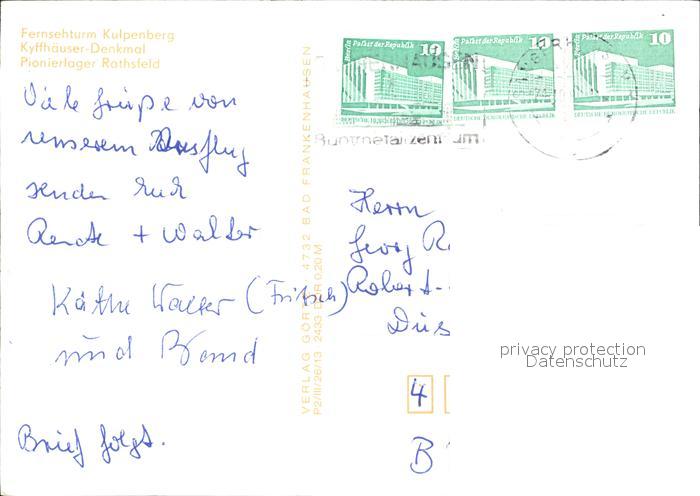 Fernsehturm Kulpenberg
Kyffhäuser-Denkmal
Pionierlager Rathsfeld
Viele Grüße von
unserem Ausflug
senden Euch
Renate + Walter
Käthe Walter (Fritsch)
und Bernd
Brief folgt.
VERLAG 4732 BAD FRANKENHAUSEN
P2/III/26/13 2433 0,20 M
Berlin Palast der Republik 10
Berlin Palast der Republik 10
Berlin Palast der Republik 10
DEUTSCHE DEMOKRATISCHE REPUBLIK
DEUTSCHE DEMOKRATISCHE REPUBLIK
DEUTSCHE DEMOKRATISCHE REPUBLIK
Herrn
Georg
Robert-
Düs
4
B
privacy protection
Datenschutz